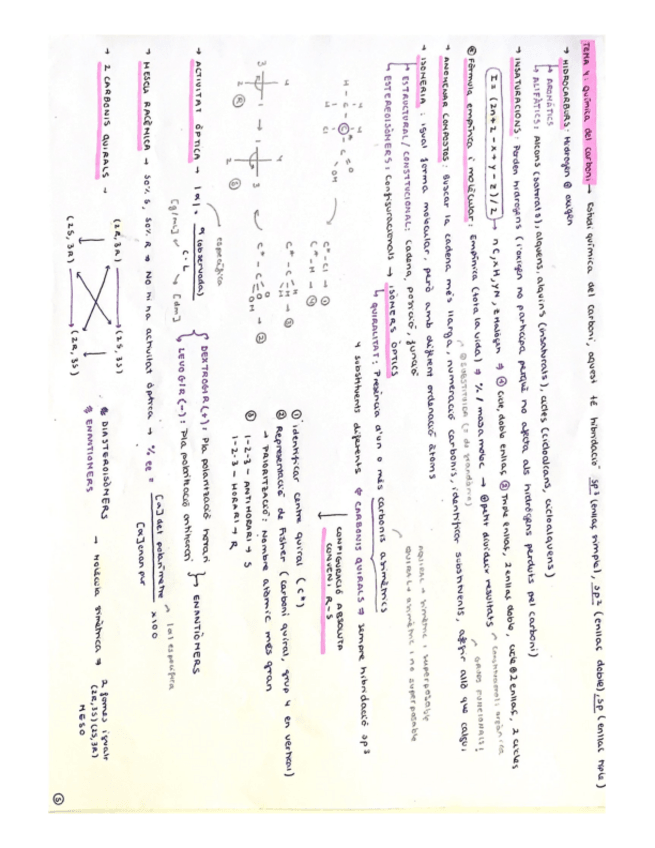 TEMA 4: química del carboni → Estudi química del carboni, aquest té hibridació sp³ (enllaç simple), sp² (enllaç doble), sp (enllaç triple)
→ HIDROCARBURS: Hidrogen ⊕ oxigen
↳ AROMÀTICS
↳ ALIFÀTICS: Alcans (saturats), alquens, alquins (insaturats), cicles (cicloalcans, cicloalquens)
→ INSATURACIONS: Perden hidrogens (l'oxigen no participa perquè no afecta als hidrògens perduts pel carboni)
I = (2n+2-x+y-z)/2 → nC, xH, yN, z Halògen ⇒ ① cicle, doble enllaç ② Triple enllaç, 2 enllaç doble, cicle ⊕ 2 enllaç, 2 cicles
⊛ Fórmula empírica i molecular: Empírica (tota la vida) ⇒ % / massa molec → ⊕ petit dividear resultats
→ ANOMENAR COMPOSTOS: Buscar la cadena més llarga, numeració carbonis, identificar substituents, afegir allò que calgui
→ ISOMERIA: igual forma molecular, però amb diferent ordenació àtoms
↳ ESTRUCTURAL / CONSTITUCIONAL: cadena, posició, funció
↳ ESTEREOISÒMERS: Configuracionals → ISÒMERS ÒPTICS
↳ QUIRALITAT: Presència d'un o més carbonis asimètrics
AQUIRAL → simètric i superposable
QUIRAL → asimètric i no superposable
4 substituents diferents ⇒ CARBONIS QUIRALS ⇒ sempre hibridació sp³
CONFIGURACIÓ ABSOLUTA
CONVENI R-S
C*-Cl → ①
C*-H → ④
① identificar centre quiral (C*)
② Representació de Fisher (carboni quiral, grup 4 en vertical)
→ PRIORITZACIÓ: Nombre atòmic més gran
③ 1-2-3 → ANTIHORARI → S
1-2-3 → HORARI → R
→ ACTIVITAT ÒPTICA → [α] = α (observada) / C·L
específica
[g/mL] [dm]
DEXTROGIR (+): Pla polarització horari
LEVOGIR (-): Pla polarització antihorari
ENANTIÒMERS
→ MESCLA RACÈMICA → 50% S, 50% R → No hi ha activitat òptica → % ee = [α] del polarímetre / [α] enan pur x100
[α] específica
→ 2 CARBONIS QUIRALS →
(2R, 3R) → (2S, 3S)
(2S, 3R) → (2R, 3S)
⊛ DIASTEROISÒMERS
⊛ ENANTIÒMERS
→ Molècula simètrica ⇒ 2 formes iguals
(2R,3S) (2S,3R)
MESO
5